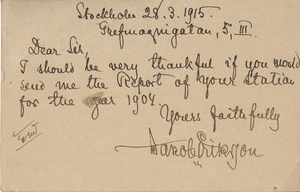 Stockholm 28.3.1915.
Grefmagnigatan, 5, III.
Dear Sir,
I should be very thankful if you would
send me the Report of Your Station
for the year 1904.
Yours faithfully
Jakob Eriksson